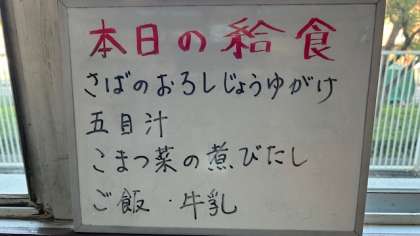 本日の給食
さばのおろしじょうゆがけ
五目汁
こまつ菜の煮びたし
ご飯・牛乳